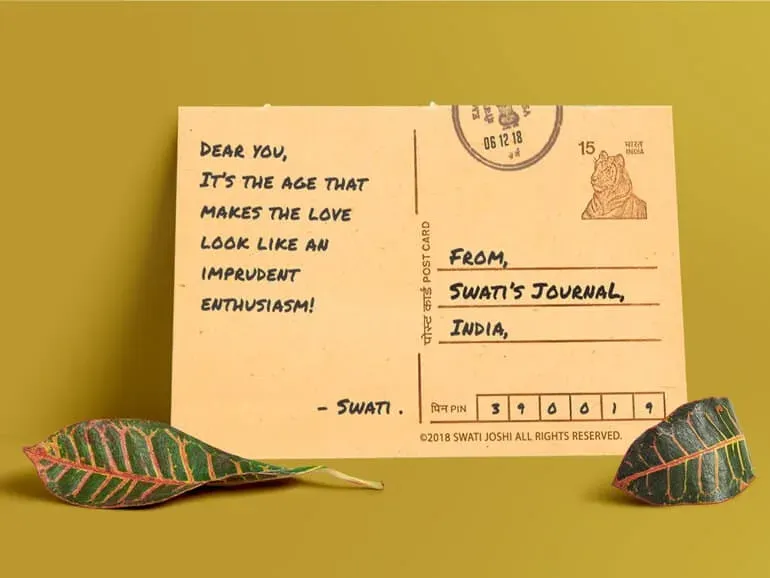 DEAR YOU,
IT'S THE AGE THAT
MAKES THE LOVE
LOOK LIKE AN
IMPRUDENT
ENTHUSIASM!
- SWATI .
पोस्ट कार्ड POST CARD
06 12 18
15 भारत
INDIA
FROM,
SWATI'S JOURNAL,
INDIA,
पिन PIN 3 9 0 0 1 9
©2018 SWATI JOSHI ALL RIGHTS RESERVED.